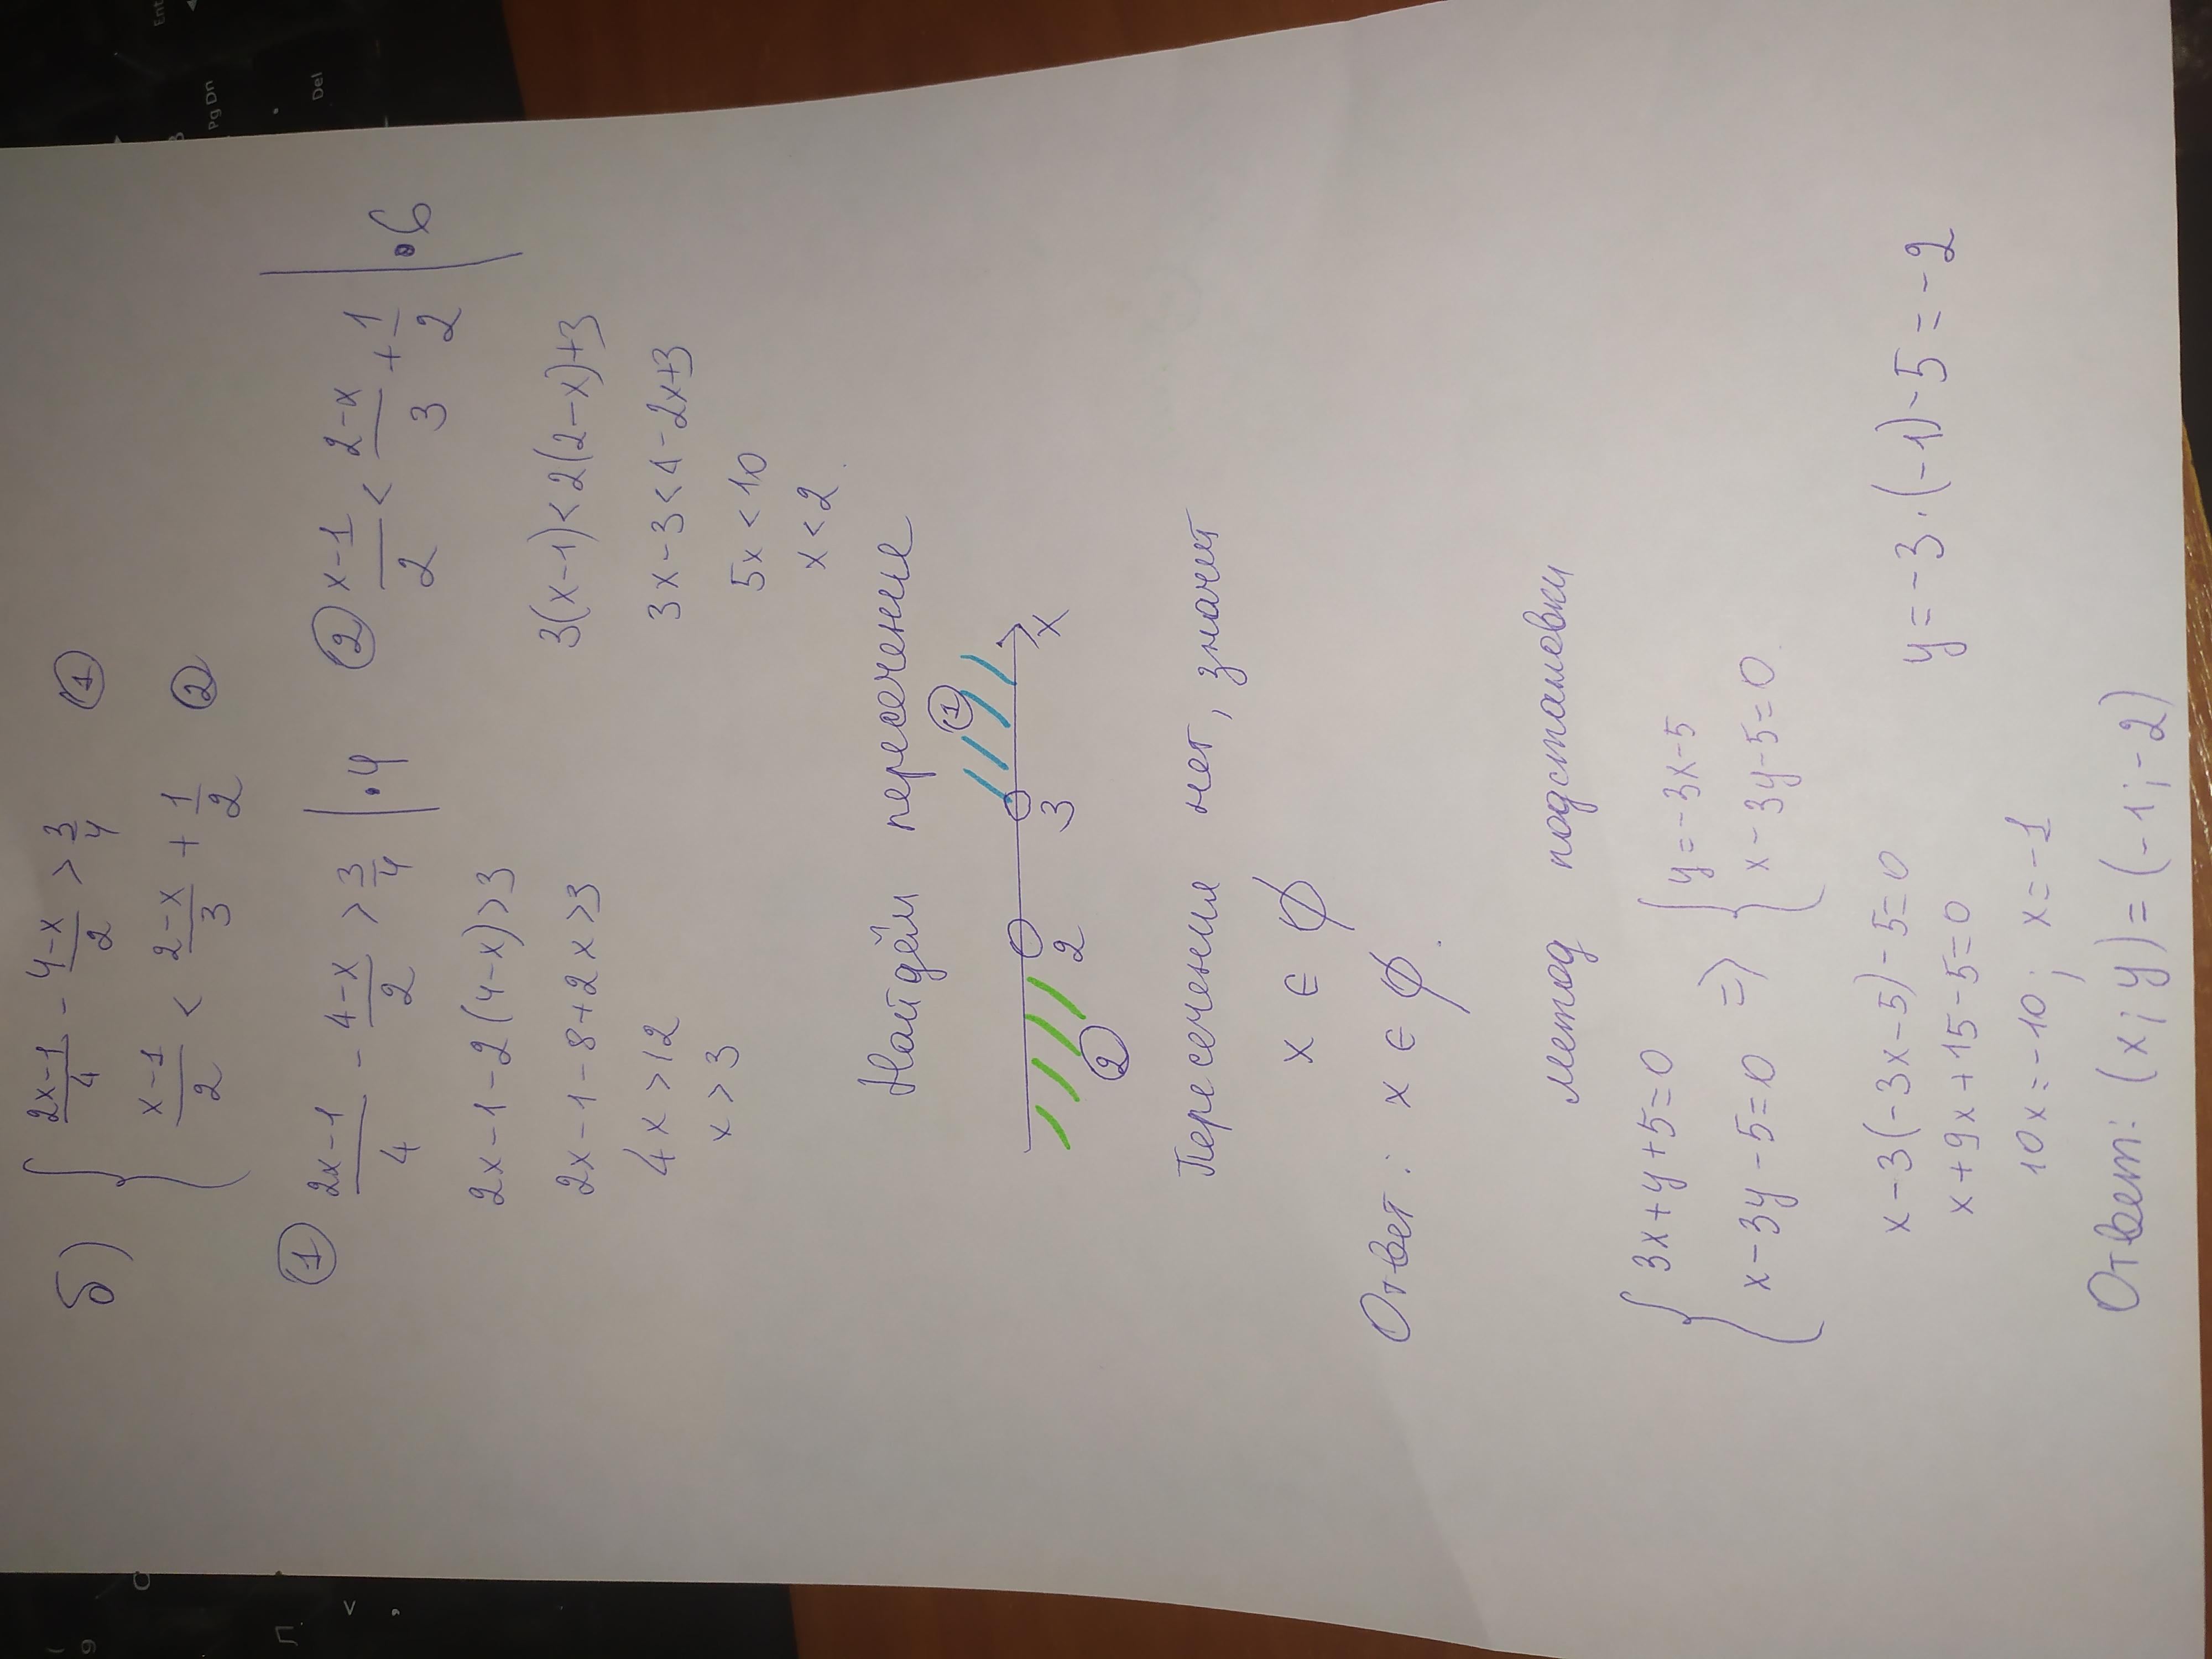 б) { (2x-1)/4 - (4-x)/2 > 3/4 ①
(x-1)/2 < (2-x)/3 + 1/2 ②
① (2x-1)/4 - (4-x)/2 > 3/4 | ·4
2x-1-2(4-x)>3
2x-1-8+2x>3
4x>12
x>3
② (x-1)/2 < (2-x)/3 + 1/2 | ·6
3(x-1)<2(2-x)+3
3x-3<4-2x+3
5x<10
x<2.
Найдём пересечение
① ② 2 3 x
Пересечения нет, значит
x ∈ ∅
Ответ: x ∈ ∅.
метод подстановки
{ 3x+y+5=0 => { y=-3x-5
x-3y-5=0 x-3y-5=0
x-3(-3x-5)-5=0
x+9x+15-5=0
10x=-10; x=-1
y=-3·(-1)-5=-2
Ответ: (x; y)=(-1; -2)
Ent
Pg Dn
Del
Л
<
,
9
(